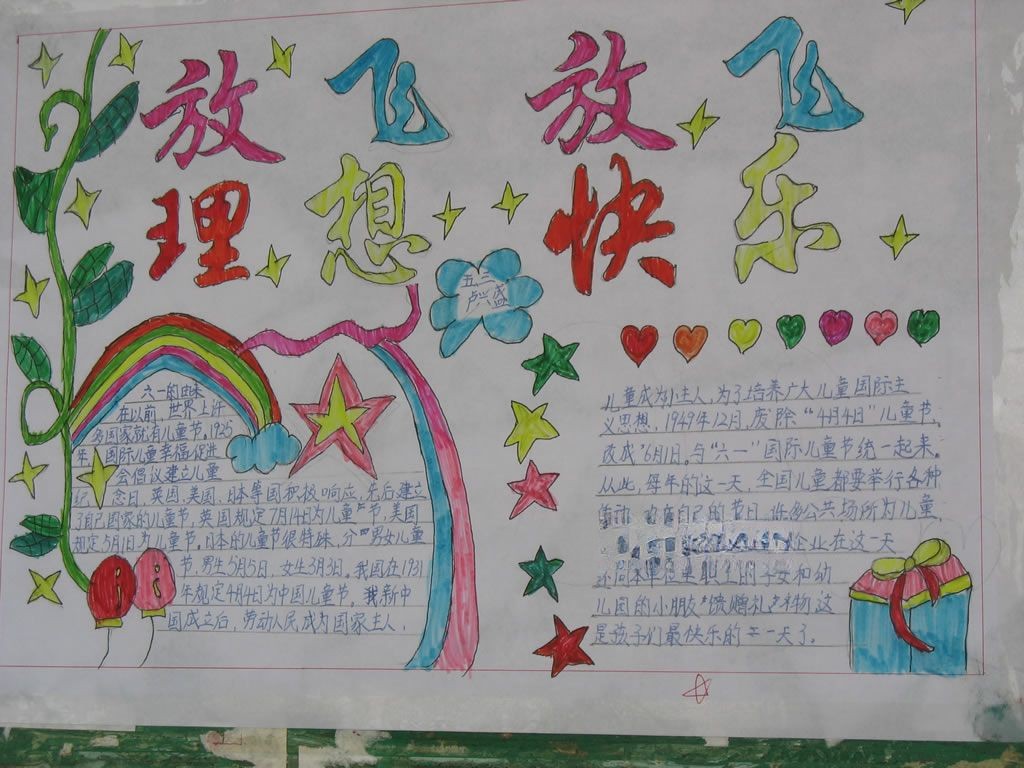 放飞 放飞
理想 快乐
五三
卢兴盛
六一的由来
在以前,世界上许
多国家就有儿童节。1925
年,国际儿童幸福促进
会倡议建立儿童
纪念日,英国、美国、日本等国积极响应,先后建立
了自己国家的儿童节,英国规定7月14日为儿童节,美国
规定5月1日为儿童节。日本的儿童节很特殊,分男女儿童
节,男生5月5日,女生3月3日。我国在1931
年规定4月4日为中国儿童节。我新中
国成立后,劳动人民成为国家主人,
儿童成为小主人,为了培养广大儿童国际主
义思想,1949年12月,废除“4月4日”儿童节,
改成6月1日。与“六一”国际儿童节统一起来。
从此,每年的这一天,全国儿童都要举行各种
自己的节日,公共场所为儿童,
企业在这一天
还向本单位职工的子女和幼
儿园的小朋友馈赠礼物,这
是孩子们最快乐的一天了。